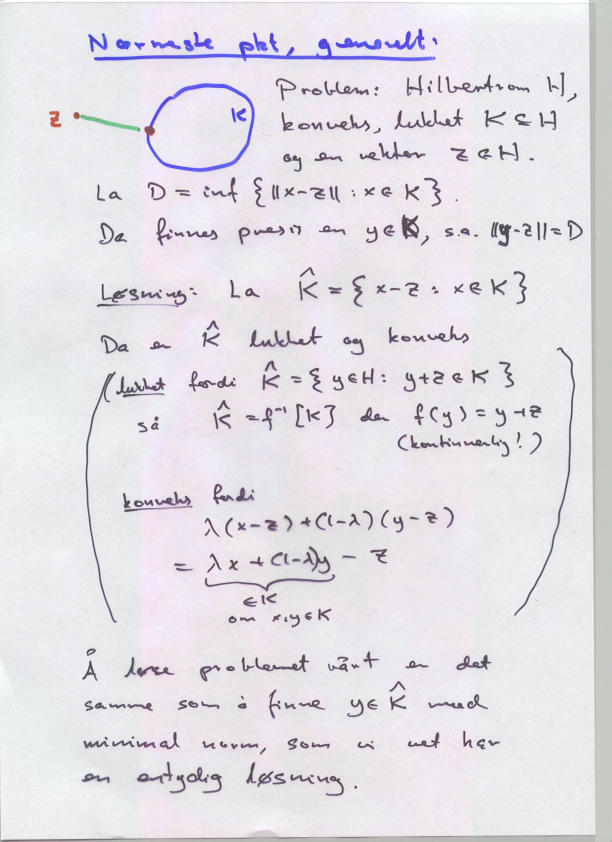 Nærmeste pkt, generelt:
z K
Problem: Hilbertrom H,
konveks, lukket K ⊆ H
og en vektor z ∈ H.
La D = inf { ||x-z|| : x ∈ K }.
Da finnes presis en y ∈ K, s.a. ||y-z|| = D
Løsning: La K̂ = { x-z : x ∈ K }
Da er K̂ lukket og konveks
(lukket fordi K̂ = { y ∈ H : y+z ∈ K }
så K̂ = f⁻¹[K] der f(y) = y+z
(kontinuerlig!)
konveks fordi
λ(x-z) + (1-λ)(y-z)
= λx + (1-λ)y - z
∈ K
om x,y ∈ K)
Å løse problemet vårt er det
samme som å finne y ∈ K̂ med
minimal norm, som vi vet har
en entydig løsning.